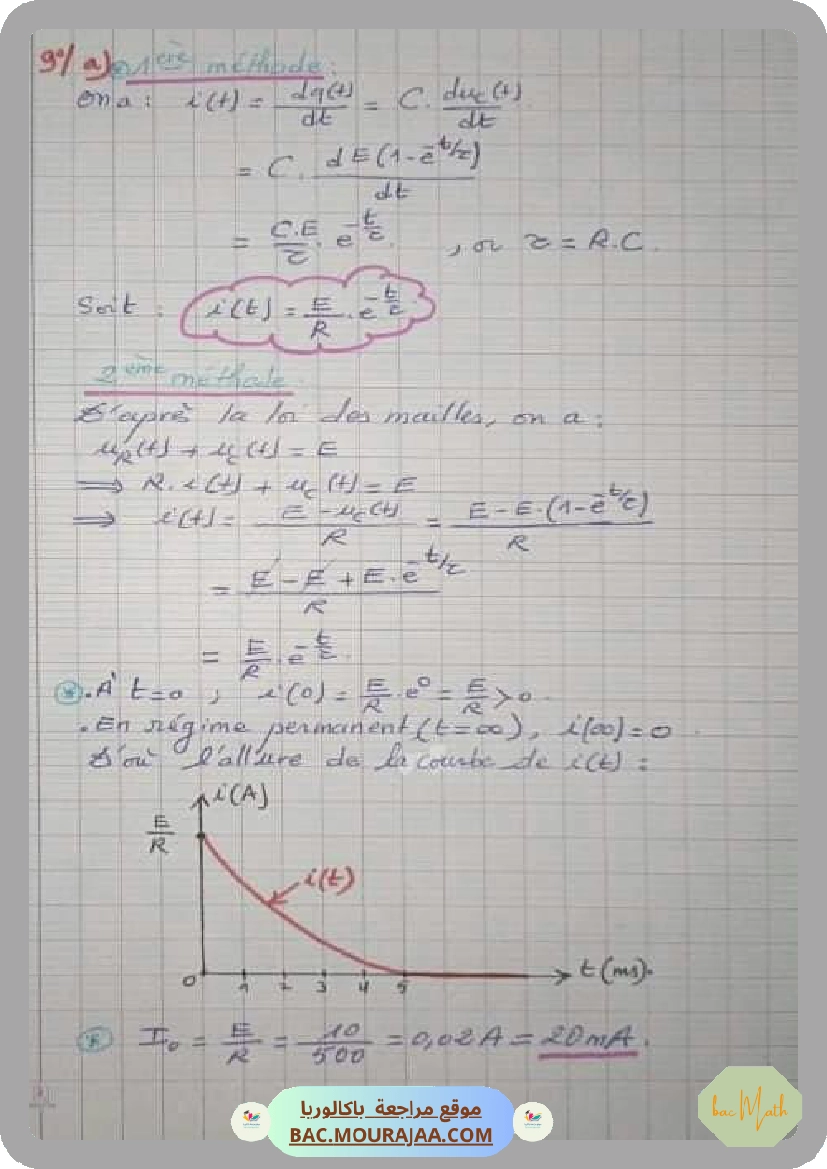 9°/ a) 1ère méthode:
on a : i(t) = dq(t)/dt = C. duc(t)/dt
= C. d E(1-e^-t/τ)/dt
= C.E/τ . e^-t/τ. , or τ = R.C.
Soit : i(t) = E/R . e^-t/τ
2ème méthode
D'après la loi des mailles, on a :
uR(t) + uc(t) = E
⟹ R. i(t) + uc(t) = E
⟹ i(t) = E - uc(t)/R = E - E.(1-e^-t/τ)/R
= E - E + E. e^-t/τ/R
= E/R . e^-t/τ.
. A t=0 ; i(0) = E/R . e^0 = E/R > 0.
. En régime permanent (t=∞), i(∞) = 0.
D'où l'allure de la courbe de i(t) :
i(A)
E/R
i(t)
0 1 2 3 4 5 t(ms).
I0 = E/R = 10/500 = 0,02 A = 20 mA.
موقع مراجعة باكالوريا
BAC.MOURAJAA.COM
bac Math